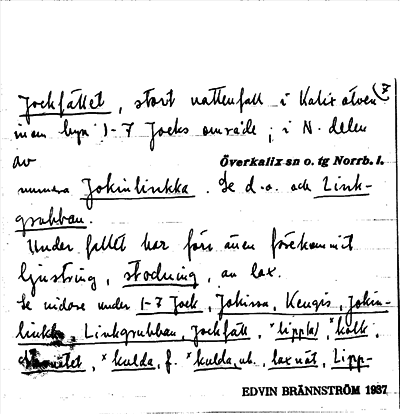 Jockfallet, stort vattenfall i Kalix älven 7
inom byn 1-7 Jocks område, i N. delen
av Överkalix sn o. tg Norrb. l.
numera Jokinlinkka. Se d. o. och Link-
grubban.
Under fallet har förr även förekommit
ljustring, stockning, av lax.
Se vidare under 1-7 Jock, Jokissa, Kengis, Jokin-
linkka, Linkgrubban, Jockfall, *kolk,
*kulda, f. *kulda, vb. laxnät, Lipp-
EDVIN BRÄNNSTRÖM 1937